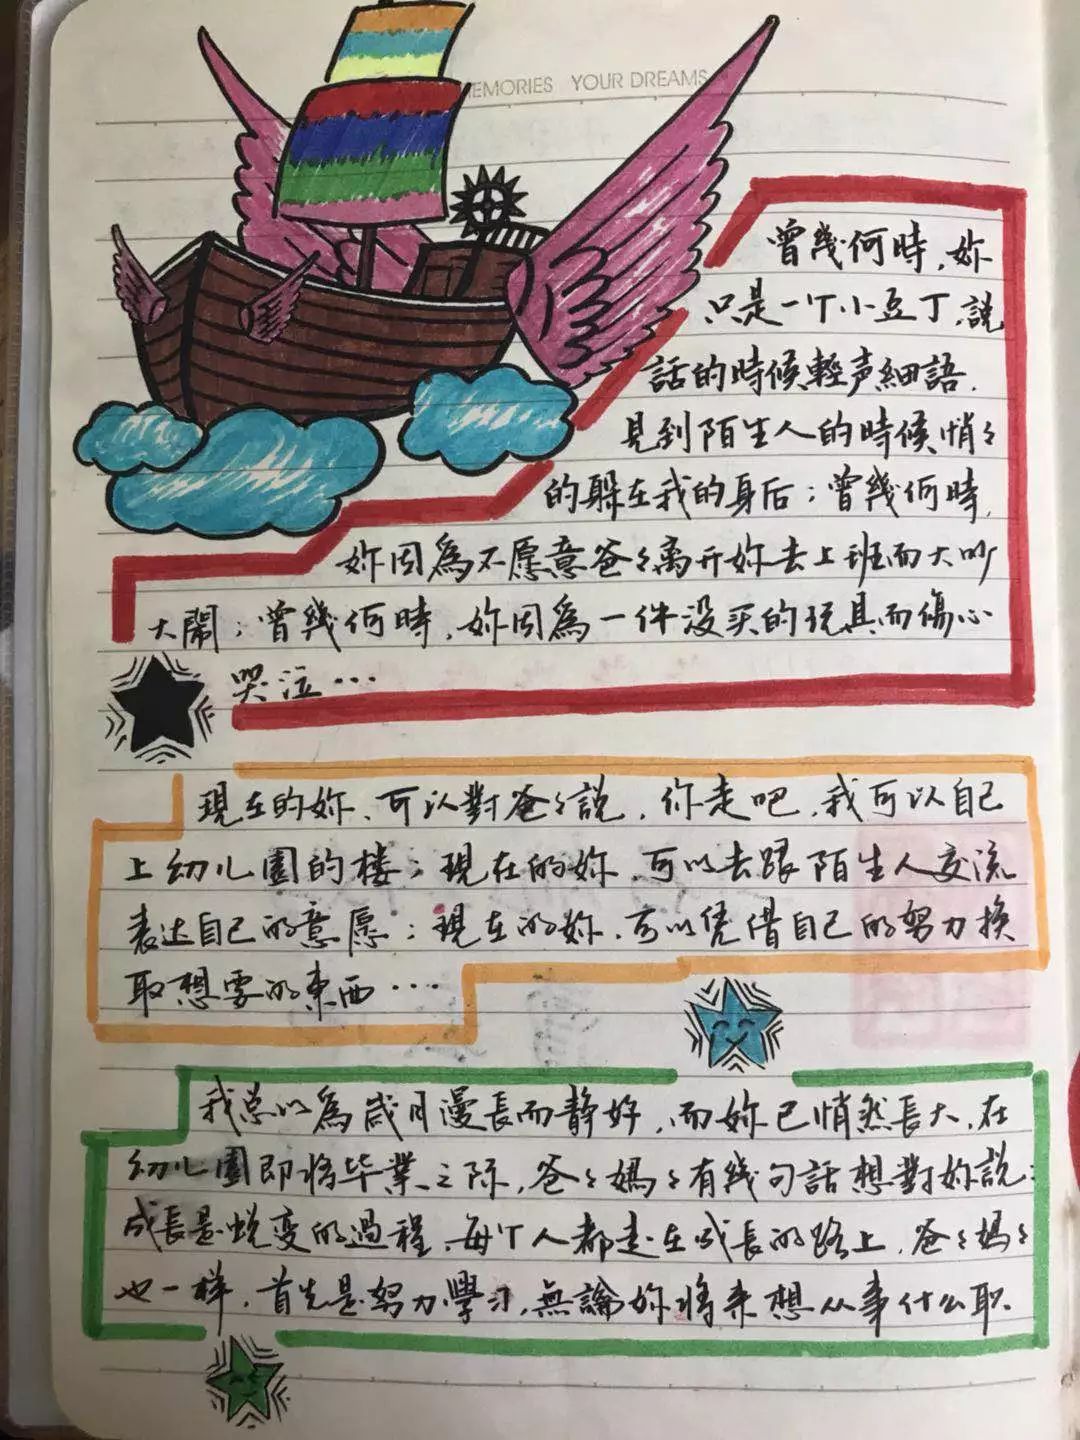 EMORIES YOUR DREAMS
曾幾何時，妳
只是一个小豆丁，説
話的時候輕声細語，
見到陌生人的時候悄々
的躲在我的身后；曾幾何時，
妳因為不愿意爸々离开妳去上班而大吵
大鬧；曾幾何時，妳因為一件没买的玩具而傷心
哭泣…
現在的妳，可以對爸々説，你走吧，我可以自己
上幼儿園的楼；現在的妳，可以去跟陌生人交流
表达自己的意愿；現在的妳，可以凭借自己的努力换
取想要的東西…
我总以為歲月漫長而静好，而妳已悄然長大，在
幼儿園即将毕業之际，爸々媽々有幾句話想對妳説：
成長是蜕变的過程，每个人都走在成長的路上，爸々媽々
也一样，首先是努力學习，無論妳将来想从事什么职